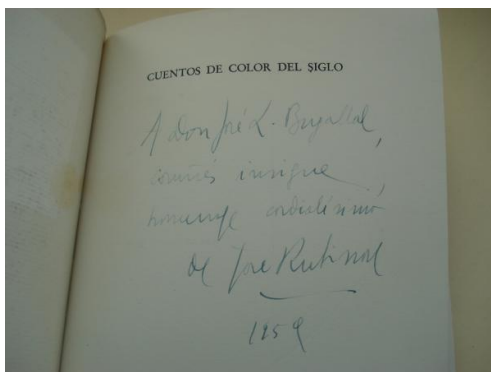 CUENTOS DE COLOR DEL SIGLO
A Don José L. Bugallal,
coruñés insigne,
homenaje cordialísimo
de José Rubinos
1959